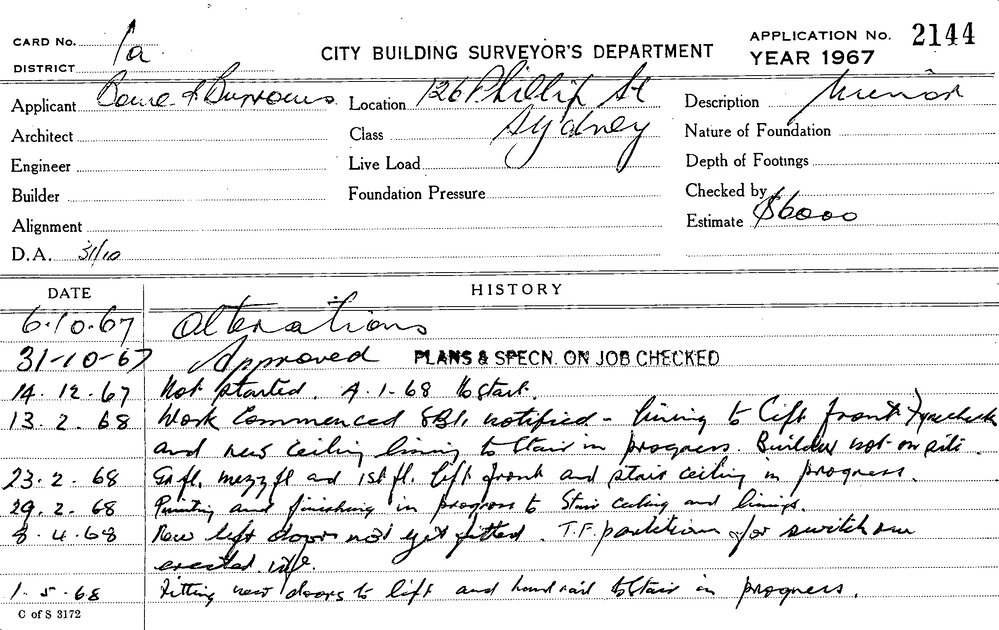 CARD No. 1a
DISTRICT
CITY BUILDING SURVEYOR'S DEPARTMENT
APPLICATION No. 2144
YEAR 1967
Applicant & Burrows Location 126 Phillip St Description Minor
Architect Class Sydney Nature of Foundation
Engineer Live Load Depth of Footings
Builder Foundation Pressure Checked by
Alignment Estimate $6000
D.A. 31/10
DATE HISTORY
6.10.67 Alterations
31-10-67 Approved PLANS & SPECN. ON JOB CHECKED
14.12.67 Not started. 4.1-68 No start.
13.2.68 Work Commenced notified - lining to lift front
and new ceiling lining to stair in progress. Builder not on site.
23.2.68 Gr fl. mezz fl and 1st fl. lift front and stair ceiling in progress.
29.2.68 Painting and finishing in progress to Stair ceiling and linings.
8.4.68 New lift doors not yet fitted. T.F. partition for switch
erected.
1.5.68 Fitting new doors to lift and handrail to stair in progress.
C of S 3172